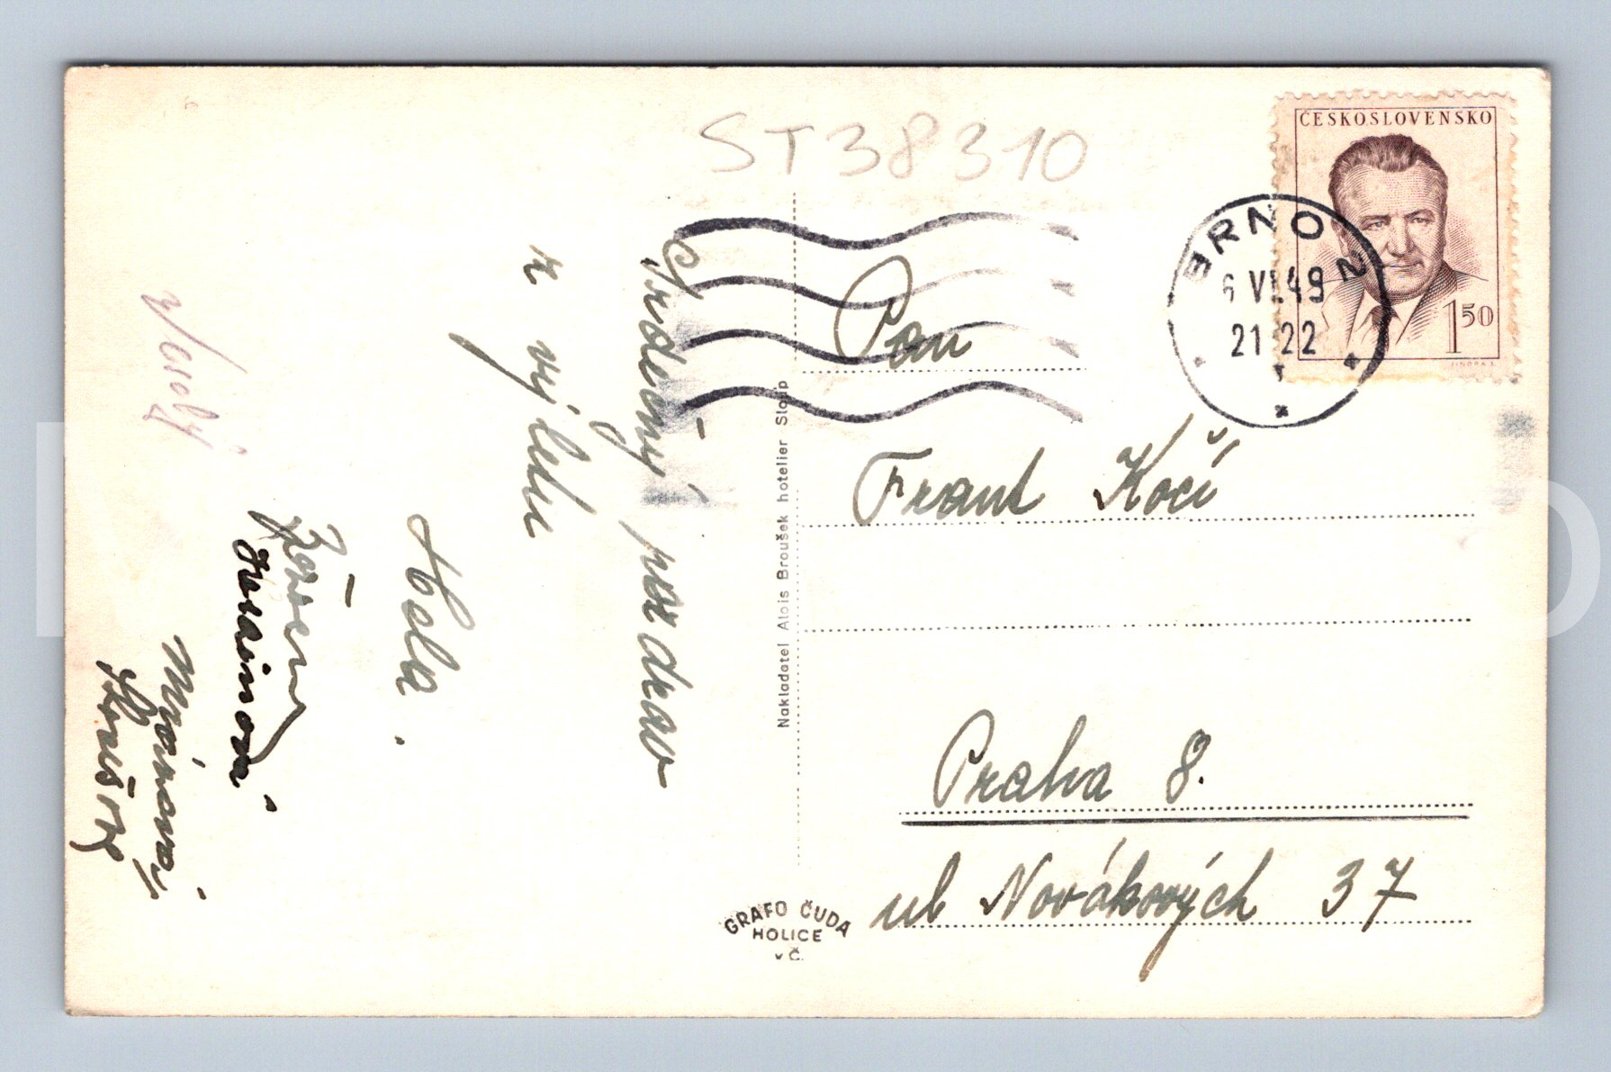 ST38310
ČESKOSLOVENSKO
1 50
BRNO 2
6 VI.49
21 22
Srdečný pozdrav
z výletu
Pan
Frant Kočí
Praha 8.
ul Novákových 37
Nakladatel Alois Broušek hotelier Sloup
GRAFO ČUDA
HOLICE
v Č.